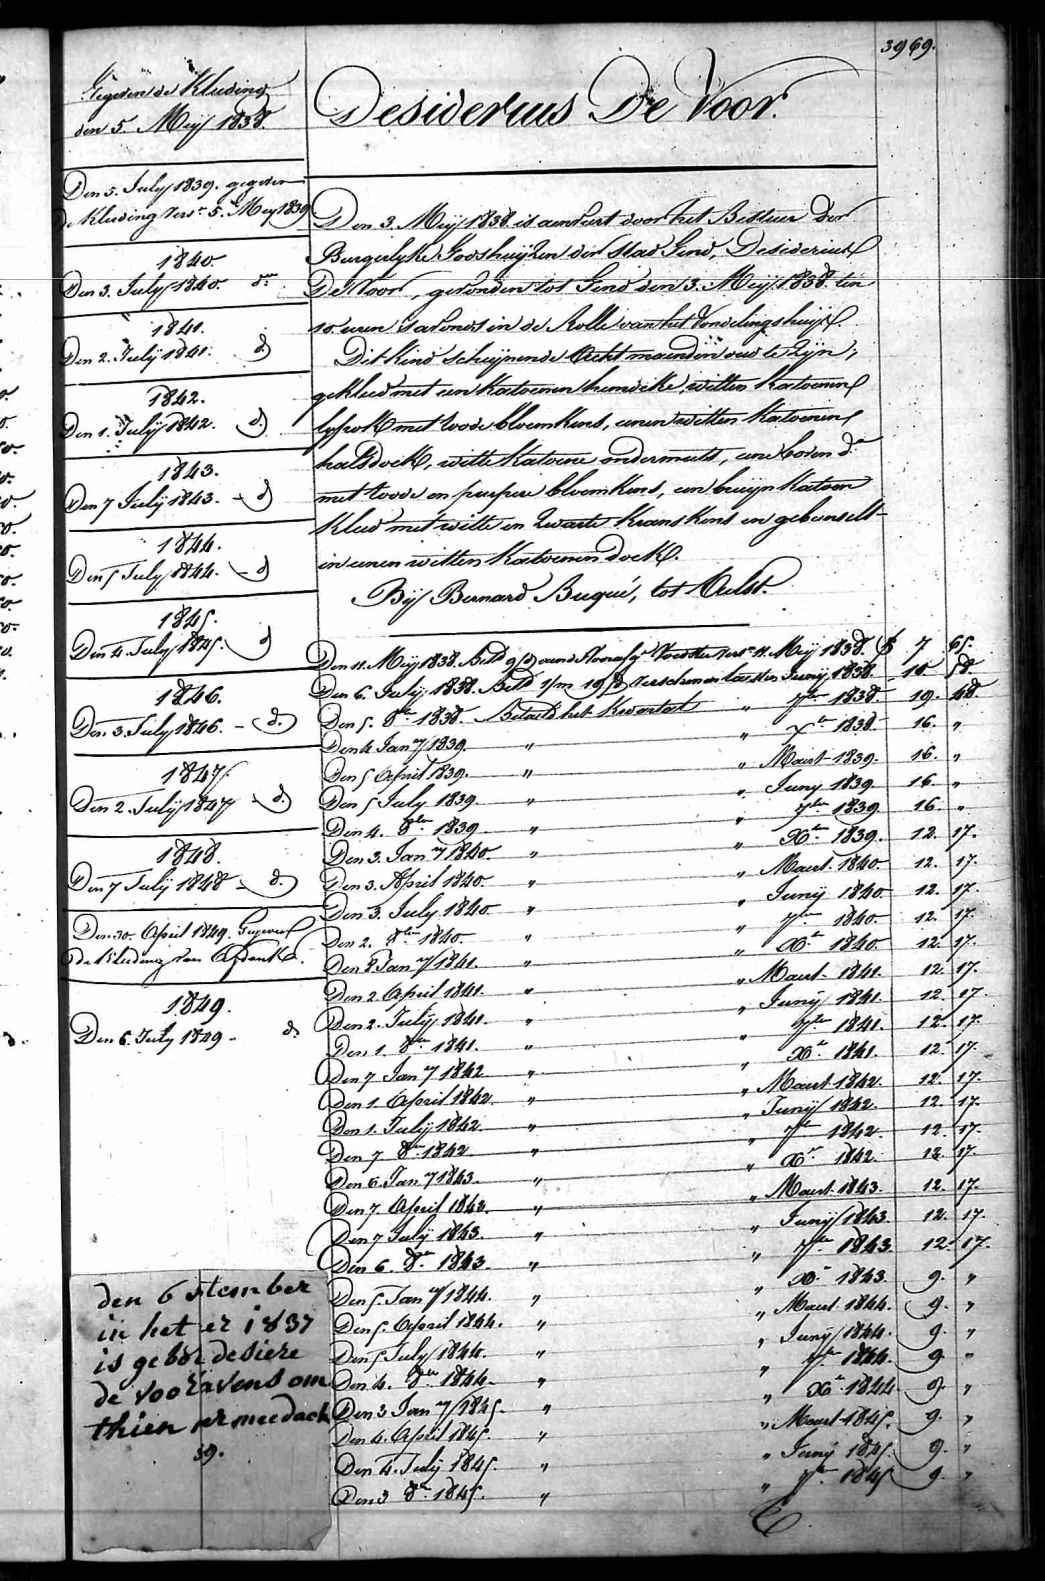 3969.
Gegeven de Kleeding
den 5. Meij 1838.
Desiderius De Voor.
Den 5. July 1839. gegeven
de Kleeding vers.n 5. Mey 1839
1840.
Den 3. July 1840. do
1841.
Den 2. July 1841. d.
1842.
Den 1. July 1842. d.
1843.
Den 7 July 1843. - d
1844.
Den 5 July 1844. - d
1845.
Den 4. July 1845. d
1846.
Den 3. July 1846. - d.
1847.
Den 2. July 1847 d.
1848.
Den 7 July 1848 - d.
Den 30. April 1849. Gegeven
de Kleeding van
1849.
Den 6. July 1849 - d.
Den 3. Meij 1838 is aenveert door het Bestuer der
Burgerlyke Godshuijzen der stad Gend, Desiderius
De Voor, gevonden tot Gend den 3. Meij 1838 ten
10 uren s'avonds in de Rolle van het Vondelingshuijs.
Dit kind schijnende Acht maenden oud te zijn,
gekleed met een katoenen hemdeke, witten katoenen
met roode bloemkens, eenen witten katoenen
halsdoek, witte katoene ondermuts, eene boven do
met roode en purpere bloemkens, een bruyn katoen
kleed met witte en zwarte kranskens en gebunselt
in eenen witten katoenen doek.
Bij Bernard Buqué, tot Aelst.
Den 11. Meij 1838. Betd aende Voedster vers.n 11. Meij 1838. 7 65.
Den 6. July 1838. Betd 1/m 19/d verschenen laesten Juny 1838. 10 58.
Den 5. 8er 1838. Betaeld het kwartael " 7ber 1838. 19. 48
Den 4 Jany 1839. " " Xber 1838 16. "
Den 5 April 1839. " " Maert 1839. 16. "
Den 5 July 1839. " " Juny 1839. 16 "
Den 4. 8ber 1839 " " 7ber 1839 16. "
Den 3. Jany 1840. " " Xber 1839. 12. 17.
Den 3. April 1840. " " Maert 1840. 12. 17.
Den 3. July 1840. " " Junij 1840. 12. 17.
Den 2. 8ber 1840. " " 7ber 1840. 12. 17.
Den 8 Jany 1841. " " Xber 1840. 12. 17.
Den 2 April 1841. " " Maert 1841. 12. 17.
Den 2. July 1841. " " Junij 1841. 12. 17.
Den 1. 8ber 1841. " " 7ber 1841. 12. 17.
Den 7 Jany 1842 " " Xber 1841. 12. 17.
Den 1. April 1842. " " Maert 1842. 12. 17.
Den 1. July 1842. " " Junij 1842. 12. 17.
Den 7 8ber 1842. " " 7ber 1842. 12. 17.
Den 6 Jany 1843. " " Xber 1842. 12. 17.
Den 7. April 1843. " " Maert 1843. 12. 17.
Den 7 July 1843. " " Junij 1843. 12. 17.
Den 6. 8ber 1843. " " 7ber 1843. 12. 17.
Den 5. Jany 1844. " " Xber 1843. 9. "
Den 5. April 1844. " " Maert 1844. 9. "
Den 5 July 1844. " " Junij 1844. 9. "
Den 4. 8ber 1844. " " 7ber 1844. 9 "
Den 3 Jany 1845. " " Xber 1844. 9. "
Den 4. April 1845. " " Maert 1845. 9. "
Den 4. July 1845. " " Junij 1845. 9. "
Den 3 8ber 1845. " " 7ber 1845 9. "
den 6 stember
in het er 1837
is gebor desiere
de voor avens om
thien er meedach
39.